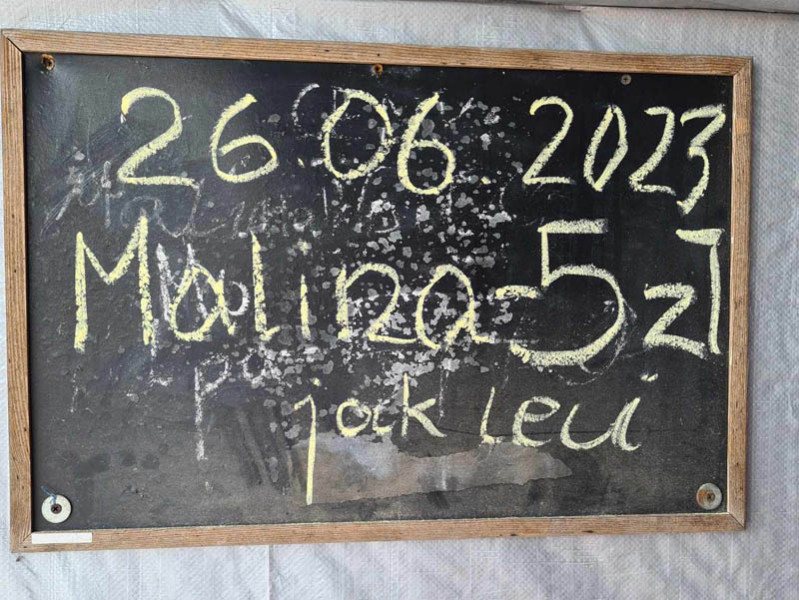 26.06.2023
Malina-5 zł
jock leci